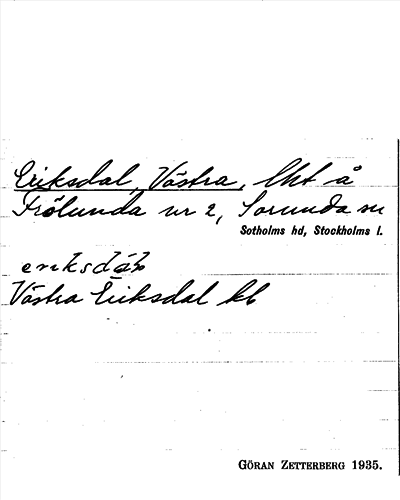 Eriksdal, Västra, lht å
Frölunda nr 2, Sorunda sn
Sotholms hd, Stockholms l.
Västra Eriksdal kb
GÖRAN ZETTERBERG 1935.